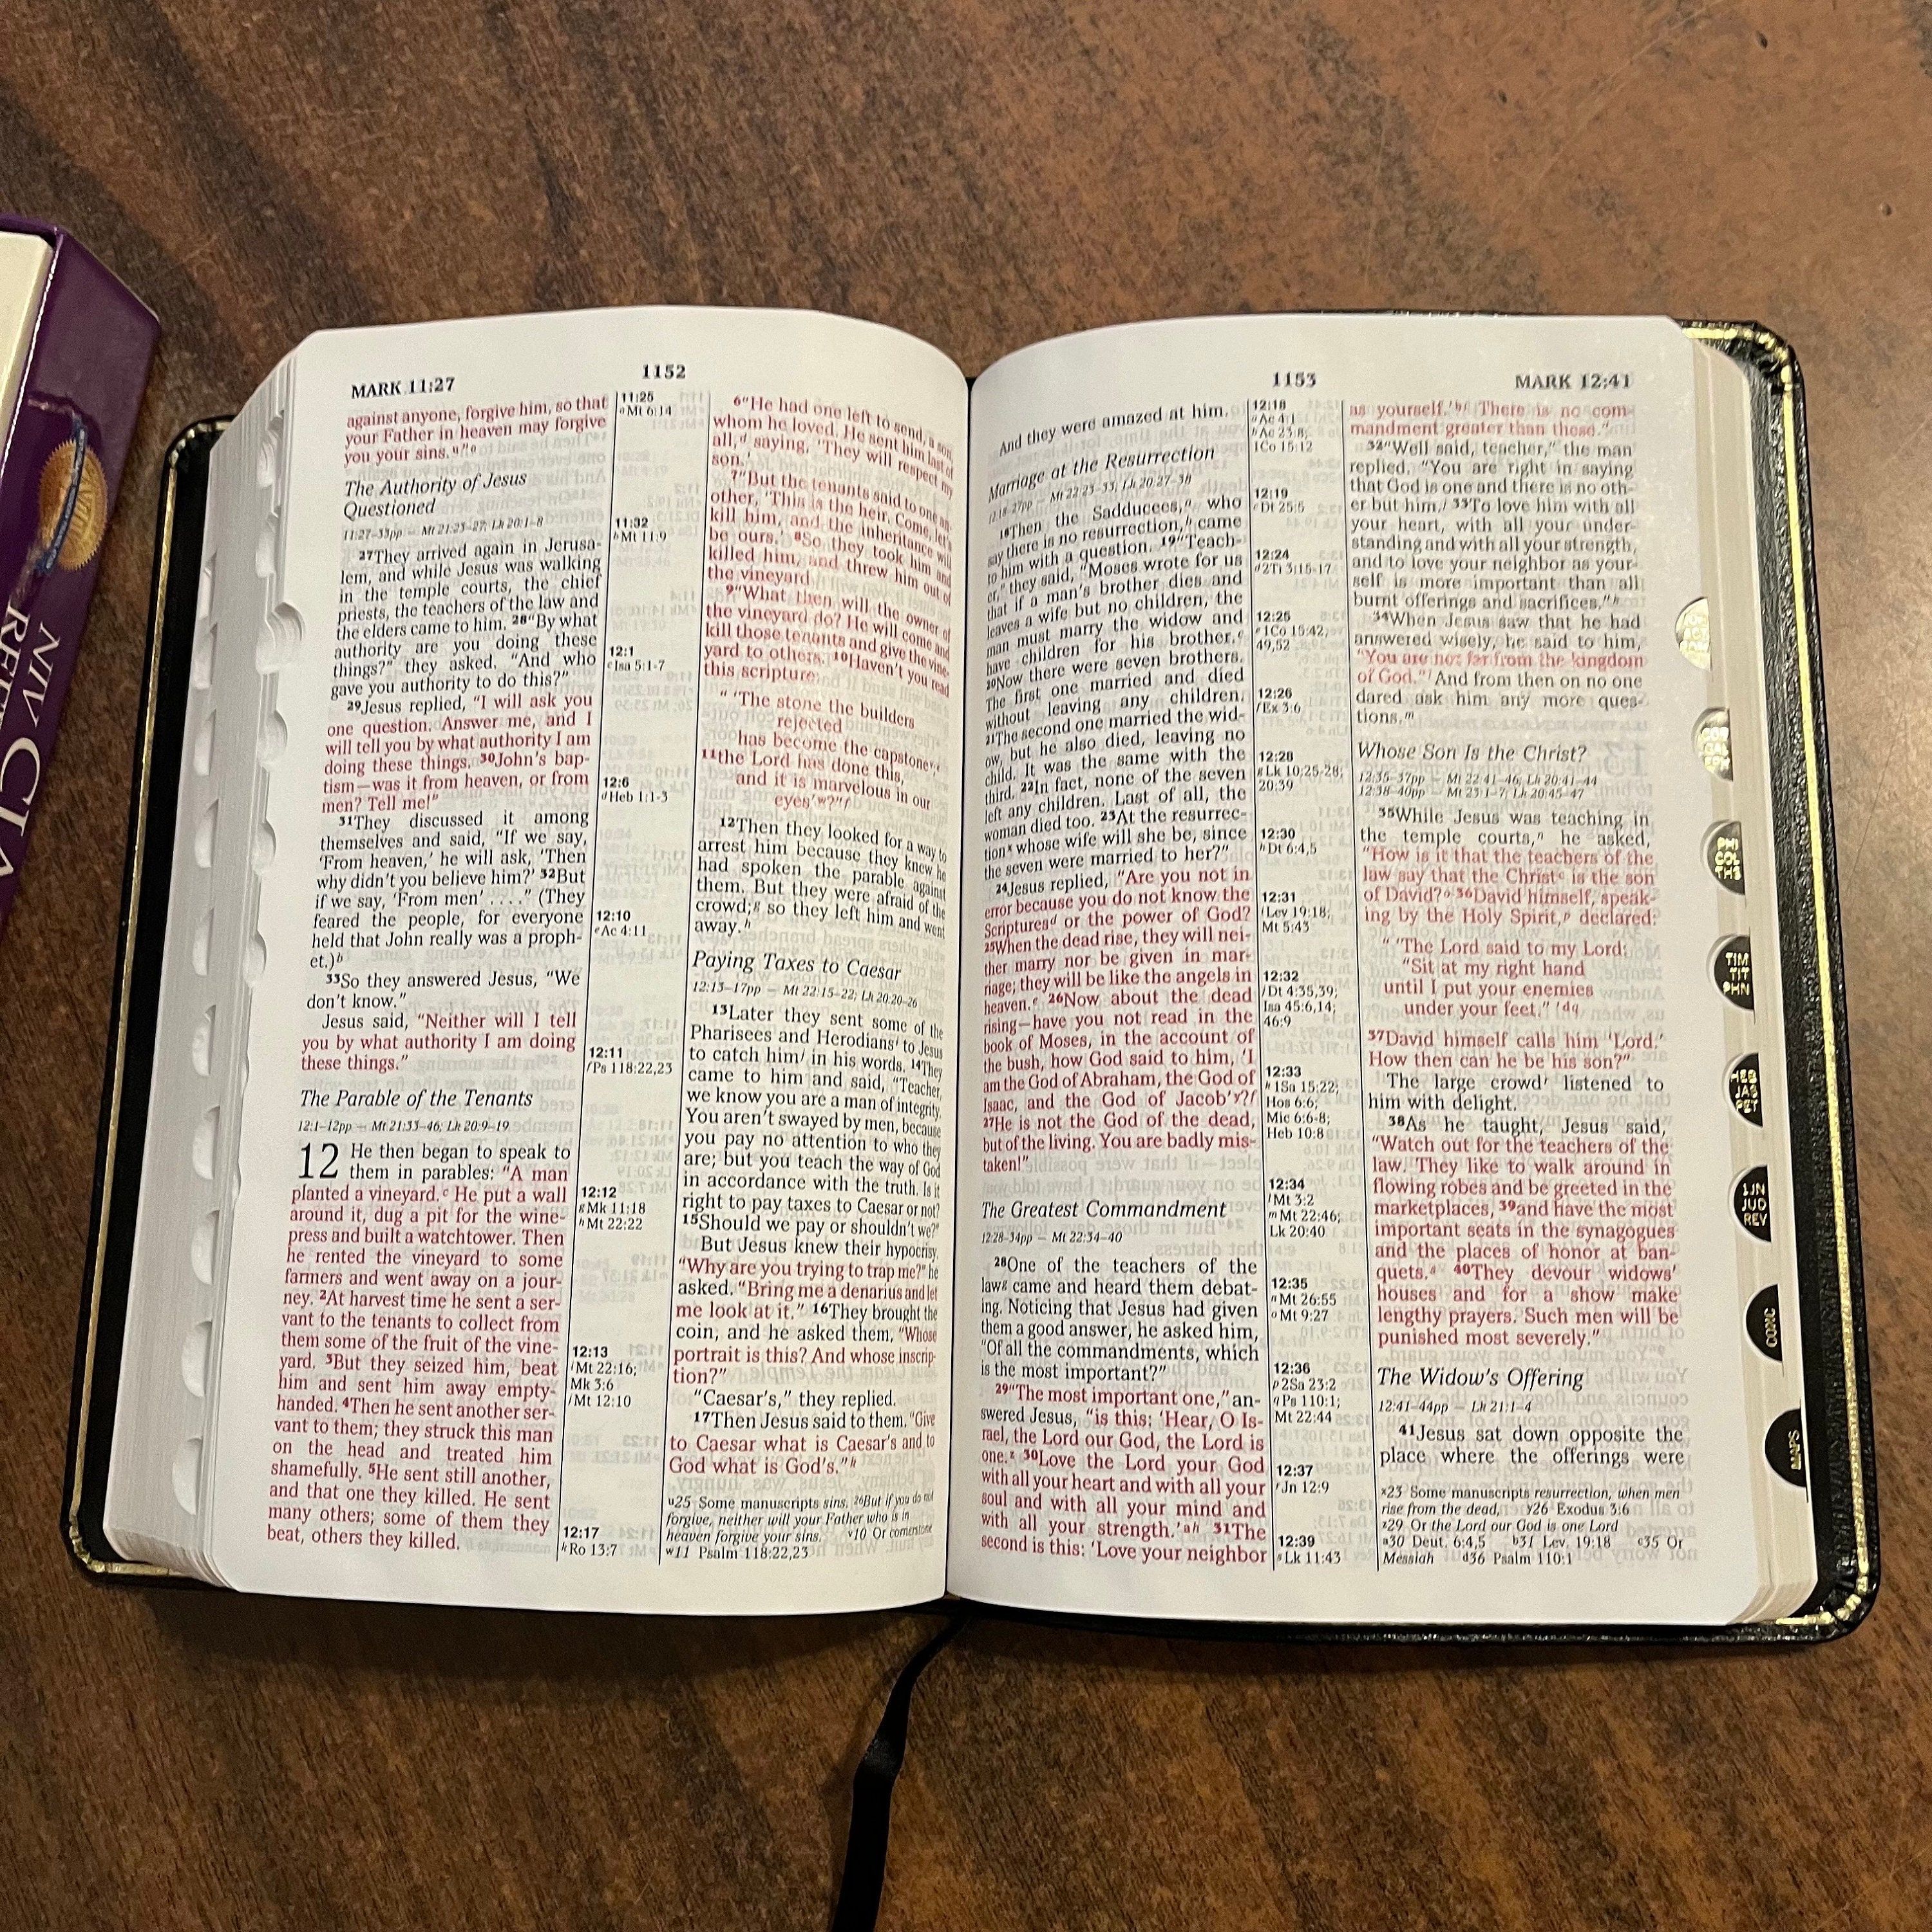 NIV CLA
MARK 11:27
1152
against anyone, forgive him, so that
your Father in heaven may forgive
you your sins.ᵘ"ᵒ
The Authority of Jesus
Questioned
11:27-33pp — Mt 21:23-27; Lk 20:1-8
²⁷They arrived again in Jerusa-
lem, and while Jesus was walking
in the temple courts, the chief
priests, the teachers of the law and
the elders came to him. ²⁸"By what
authority are you doing these
things?" they asked. "And who
gave you authority to do this?"
²⁹Jesus replied, "I will ask you
one question. Answer me, and I
will tell you by what authority I am
doing these things. ³⁰John's bap-
tism—was it from heaven, or from
men? Tell me!"
³¹They discussed it among
themselves and said, "If we say,
'From heaven,' he will ask, 'Then
why didn't you believe him?' ³²But
if we say, 'From men' . . . ." (They
feared the people, for everyone
held that John really was a proph-
et.)ᵇ
³³So they answered Jesus, "We
don't know."
Jesus said, "Neither will I tell
you by what authority I am doing
these things."
The Parable of the Tenants
12:1-12pp — Mt 21:33-46; Lk 20:9-19
12 He then began to speak to
them in parables: "A man
planted a vineyard.ᶜ He put a wall
around it, dug a pit for the wine-
press and built a watchtower. Then
he rented the vineyard to some
farmers and went away on a jour-
ney. ²At harvest time he sent a ser-
vant to the tenants to collect from
them some of the fruit of the vine-
yard. ³But they seized him, beat
him and sent him away empty-
handed. ⁴Then he sent another ser-
vant to them; they struck this man
on the head and treated him
shamefully. ⁵He sent still another,
and that one they killed. He sent
many others; some of them they
beat, others they killed.
11:25
ᵒMt 6:14
11:32
ᵇMt 11:9
12:1
ᶜIsa 5:1-7
12:6
ᵈHeb 1:1-3
12:10
ᵉAc 4:11
12:11
ᶠPs 118:22,23
12:12
ᵍMk 11:18
ʰMt 22:22
12:13
ⁱMt 22:16;
Mk 3:6
ʲMt 12:10
12:17
ᵏRo 13:7
⁶"He had one left to send, a son,
whom he loved. He sent him last of
all,ᵈ saying, 'They will respect my
son.'
⁷"But the tenants said to one an-
other, 'This is the heir. Come, let's
kill him, and the inheritance will
be ours.' ⁸So they took him and
killed him, and threw him out of
the vineyard.
⁹"What then will the owner of
the vineyard do? He will come and
kill those tenants and give the vine-
yard to others. ¹⁰Haven't you read
this scripture:
" 'The stone the builders
rejected
has become the capstoneᵛ;ᵉ
¹¹the Lord has done this,
and it is marvelous in our
eyes'ʷ?"ᶠ
¹²Then they looked for a way to
arrest him because they knew he
had spoken the parable against
them. But they were afraid of the
crowd;ᵍ so they left him and went
away.ʰ
Paying Taxes to Caesar
12:13-17pp — Mt 22:15-22; Lk 20:20-26
¹³Later they sent some of the
Pharisees and Herodiansⁱ to Jesus
to catch himʲ in his words. ¹⁴They
came to him and said, "Teacher,
we know you are a man of integrity.
You aren't swayed by men, because
you pay no attention to who they
are; but you teach the way of God
in accordance with the truth. Is it
right to pay taxes to Caesar or not?
¹⁵Should we pay or shouldn't we?"
But Jesus knew their hypocrisy.
"Why are you trying to trap me?" he
asked. "Bring me a denarius and let
me look at it." ¹⁶They brought the
coin, and he asked them, "Whose
portrait is this? And whose inscrip-
tion?"
"Caesar's," they replied.
¹⁷Then Jesus said to them, "Give
to Caesar what is Caesar's and to
God what is God's."ᵏ
ᵘ25 Some manuscripts sins. ²⁶But if you do not
forgive, neither will your Father who is in
heaven forgive your sins. ᵛ10 Or cornerstone
ʷ11 Psalm 118:22,23
1153
MARK 12:41
And they were amazed at him.
Marriage at the Resurrection
12:18-27pp — Mt 22:23-33; Lk 20:27-38
¹⁸Then the Sadducees,ᵃ who
say there is no resurrection,ᵇ came
to him with a question. ¹⁹"Teach-
er," they said, "Moses wrote for us
that if a man's brother dies and
leaves a wife but no children, the
man must marry the widow and
have children for his brother.ᶜ
²⁰Now there were seven brothers.
The first one married and died
without leaving any children.
²¹The second one married the wid-
ow, but he also died, leaving no
child. It was the same with the
third. ²²In fact, none of the seven
left any children. Last of all, the
woman died too. ²³At the resurrec-
tionˣ whose wife will she be, since
the seven were married to her?"
²⁴Jesus replied, "Are you not in
error because you do not know the
Scripturesᵈ or the power of God?
²⁵When the dead rise, they will nei-
ther marry nor be given in mar-
riage; they will be like the angels in
heaven.ᵉ ²⁶Now about the dead
rising—have you not read in the
book of Moses, in the account of
the bush, how God said to him, 'I
am the God of Abraham, the God of
Isaac, and the God of Jacob'ʸ?ᶠ
²⁷He is not the God of the dead,
but of the living. You are badly mis-
taken!"
The Greatest Commandment
12:28-34pp — Mt 22:34-40
²⁸One of the teachers of the
lawᵍ came and heard them debat-
ing. Noticing that Jesus had given
them a good answer, he asked him,
"Of all the commandments, which
is the most important?"
²⁹"The most important one," an-
swered Jesus, "is this: 'Hear, O Is-
rael, the Lord our God, the Lord is
one.ᶻ ³⁰Love the Lord your God
with all your heart and with all your
soul and with all your mind and
with all your strength.'ᵃʰ ³¹The
second is this: 'Love your neighbor
12:18
ᵃAc 4:1
ᵇAc 23:8;
1Co 15:12
12:19
ᶜDt 25:5
12:24
ᵈ2Ti 3:15-17
12:25
ᵉ1Co 15:42,
49,52
12:26
ᶠEx 3:6
12:28
ᵍLk 10:25-28;
20:39
12:30
ʰDt 6:4,5
12:31
ⁱLev 19:18;
Mt 5:43
12:32
ʲDt 4:35,39;
Isa 45:6,14;
46:9
12:33
ᵏ1Sa 15:22;
Hos 6:6;
Mic 6:6-8;
Heb 10:8
12:34
ˡMt 3:2
ᵐMt 22:46;
Lk 20:40
12:35
ⁿMt 26:55
ᵒMt 9:27
12:36
ᵖ2Sa 23:2
qPs 110:1;
Mt 22:44
12:37
ʳJn 12:9
12:39
ˢLk 11:43
as yourself.'ᵇⁱ There is no com-
mandment greater than these."
³²"Well said, teacher," the man
replied. "You are right in saying
that God is one and there is no oth-
er but him.ʲ ³³To love him with all
your heart, with all your under-
standing and with all your strength,
and to love your neighbor as your-
self is more important than all
burnt offerings and sacrifices."ᵏ
³⁴When Jesus saw that he had
answered wisely, he said to him,
"You are not far from the kingdom
of God."ˡ And from then on no one
dared ask him any more ques-
tions.ᵐ
Whose Son Is the Christ?
12:35-37pp — Mt 22:41-46; Lk 20:41-44
12:38-40pp — Mt 23:1-7; Lk 20:45-47
³⁵While Jesus was teaching in
the temple courts,ⁿ he asked,
"How is it that the teachers of the
law say that the Christᶜ is the son
of David?ᵒ ³⁶David himself, speak-
ing by the Holy Spirit,ᵖ declared:
" 'The Lord said to my Lord:
"Sit at my right hand
until I put your enemies
under your feet." 'ᵈq
³⁷David himself calls him 'Lord.'
How then can he be his son?"
The large crowdʳ listened to
him with delight.
³⁸As he taught, Jesus said,
"Watch out for the teachers of the
law. They like to walk around in
flowing robes and be greeted in the
marketplaces, ³⁹and have the most
important seats in the synagogues
and the places of honor at ban-
quets.ˢ ⁴⁰They devour widows'
houses and for a show make
lengthy prayers. Such men will be
punished most severely."
The Widow's Offering
12:41-44pp — Lk 21:1-4
⁴¹Jesus sat down opposite the
place where the offerings were
ˣ23 Some manuscripts resurrection, when men
rise from the dead, ʸ26 Exodus 3:6
ᶻ29 Or the Lord our God is one Lord
ᵃ30 Deut. 6:4,5 ᵇ31 Lev. 19:18 ᶜ35 Or
Messiah ᵈ36 Psalm 110:1
COR
GAL
EPH
PHI
COL
THS
TIM
TIT
PHN
HEB
JAS
PET
1JN
JUD
REV
CONC
MAPS